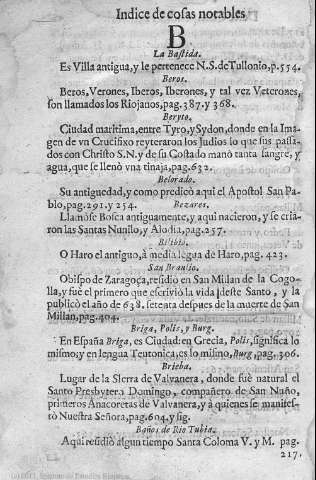 Indice de cosas notables
B
La Bastida.
Es Villa antigua, y le pertenece N. S. de Tullonio, p. 554.
Beros.
Beros, Verones, Iberos, Iberones, y tal vez Veterones,
son llamados los Riojanos, pag. 387. y 368.
Beryto.
Ciudad maritima, entre Tyro, y Sydon, donde en la Ima-
gen de vn Crucifixo reyteraron los Judios lo que sus passa-
dos con Christo S. N. y de su Costado manò tanta sangre, y
agua, que se llenò vna tinaja, pag. 632.
Belorado.
Su antiguedad, y como predicò aqui el Apostol San Pa-
blo, pag. 291. y 254.
Bezares.
Llamòse Bosca antiguamente, y aqui nacieron, y se cria-
ron las Santas Nunilo, y Alodia, pag. 257.
Bilibio.
O Haro el antiguo, à media legua de Haro, pag. 423.
San Braulio.
Obispo de Zaragoça, residiò en San Millan de la Cogo-
lla, y fue el primero que escriviò la vida deste Santo, y la
publicò el año de 638. setenta despues de la muerte de San
Millan, pag. 404.
Briga, Polis, y Burg.
En España Briga, es Ciudad: en Grecia, Polis, significa lo
mismo; y en lengua Teutonica, es lo mismo, Burg, pag. 306.
Brieba.
Lugar de la Sierra de Valvanera, donde fuè natural el
Santo Presbytero Domingo, compañero de San Nuño,
primeros Anacoretas de Valvanera, y à quienes se manifes-
tò Nuestra Señora, pag. 604. y sig.
Baños de Rio Tubia.
Aqui residiò algun tiempo Santa Coloma V. y M. pag.
217.